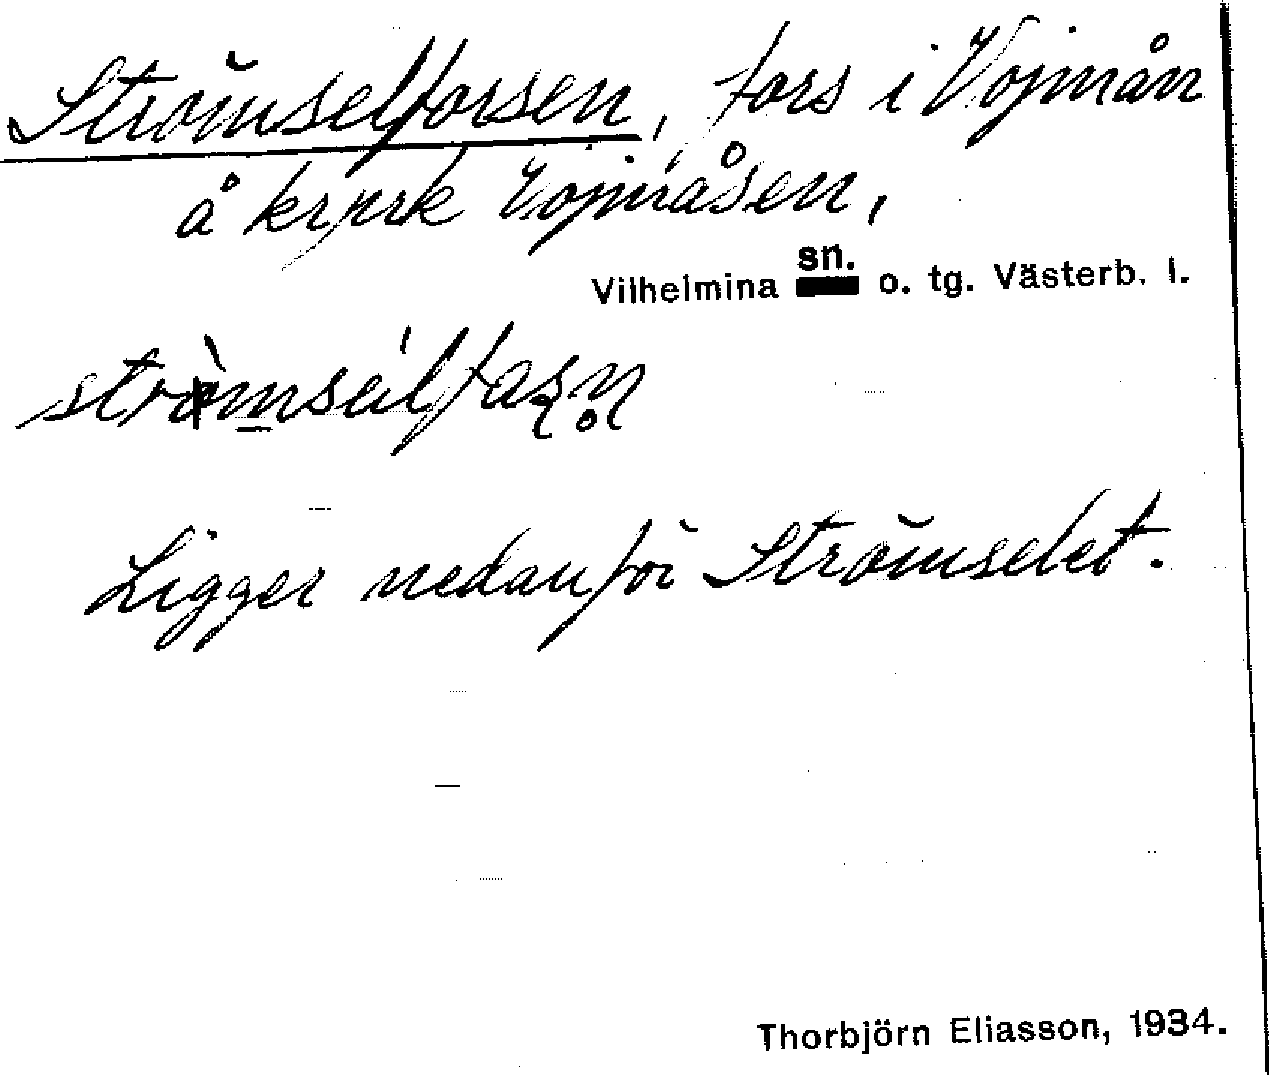 Strömselforsen, fors i Vojmån
å krprk Vojmåsen,
Vilhelmina sn. o. tg. Västerb. l.
Ligger nedanför Strömselet.
Thorbjörn Eliasson, 1934.